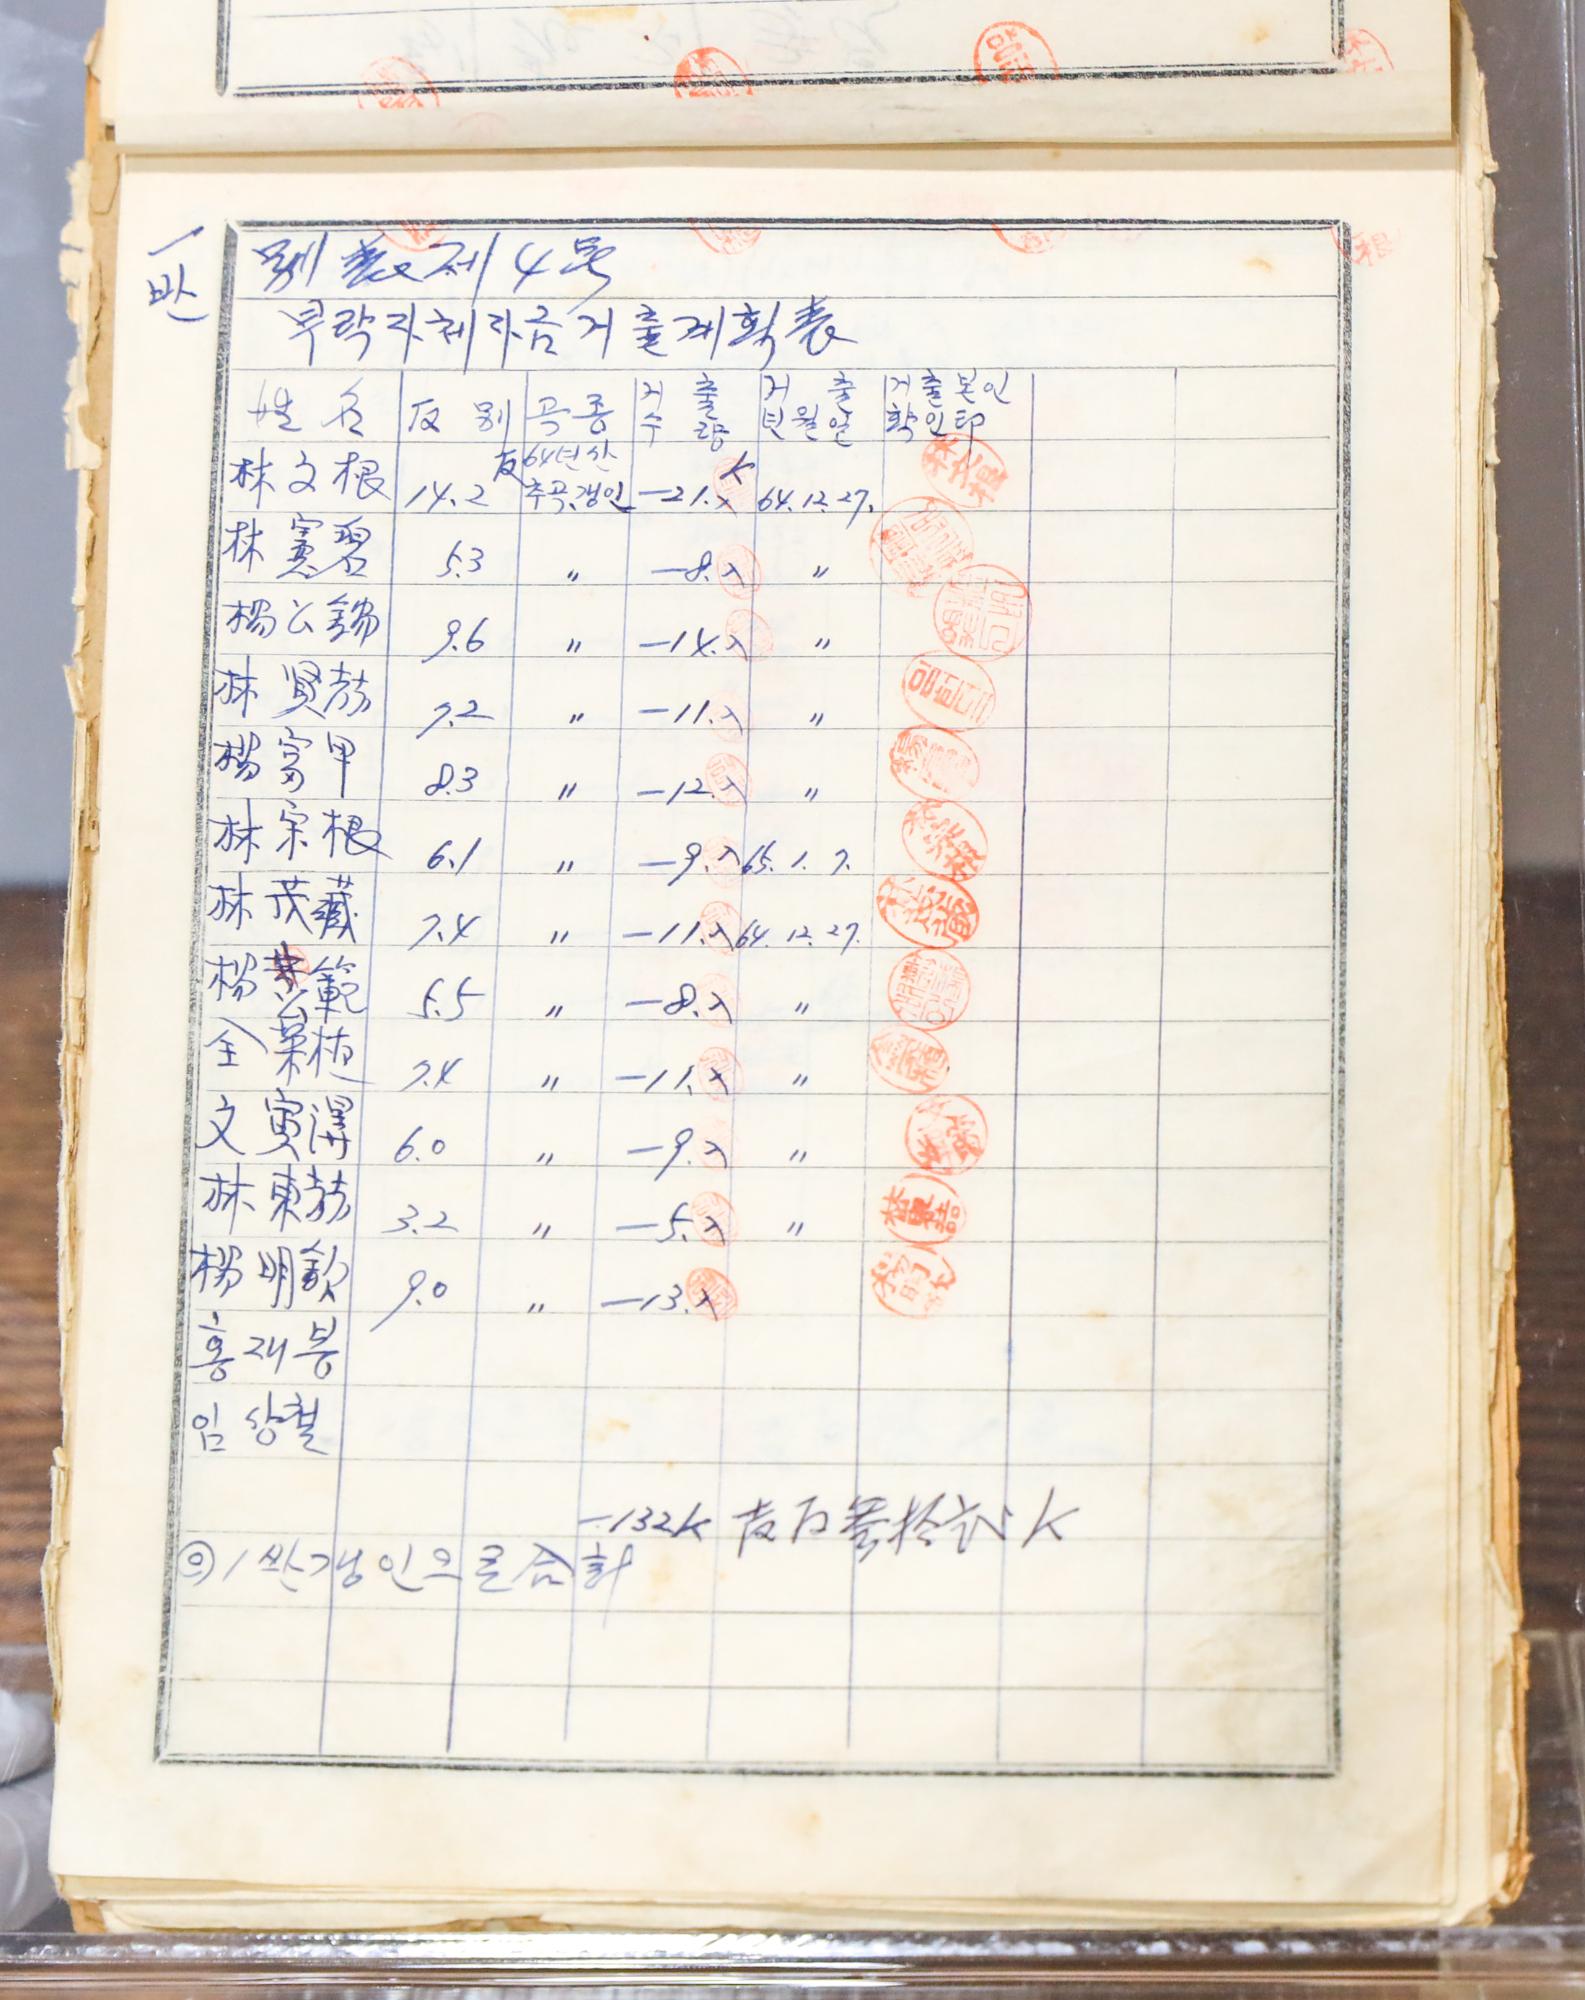 一반
別表제4号
부락자체자금거출계획表
姓名 反別 곡종 거출수량 거출년월일 거출본인확인印
林文根 14.2反 64년산추곡.갱인 -21.入K 64.12.27.
林憲碧 5.3 〃 -8.入 〃
楊公錫 9.6 〃 -14.入 〃
林賢喆 7.2 〃 -11.入 〃
楊富甲 8.3 〃 -12.入 〃
林宗根 6.1 〃 -9.入 65.1.7.
林茂藏 7.4 〃 -11.入 64.12.27.
楊公範 5.5 〃 -8.入 〃
全 7.4 〃 -11.入 〃
文寅澤 6.0 〃 -9.入 〃
林東喆 3.2 〃 -5.入 〃
楊明欽 9.0 〃 -13.入
홍재봉
임상철
-132K 壱百参拾弐K
1싼갱인으로合計